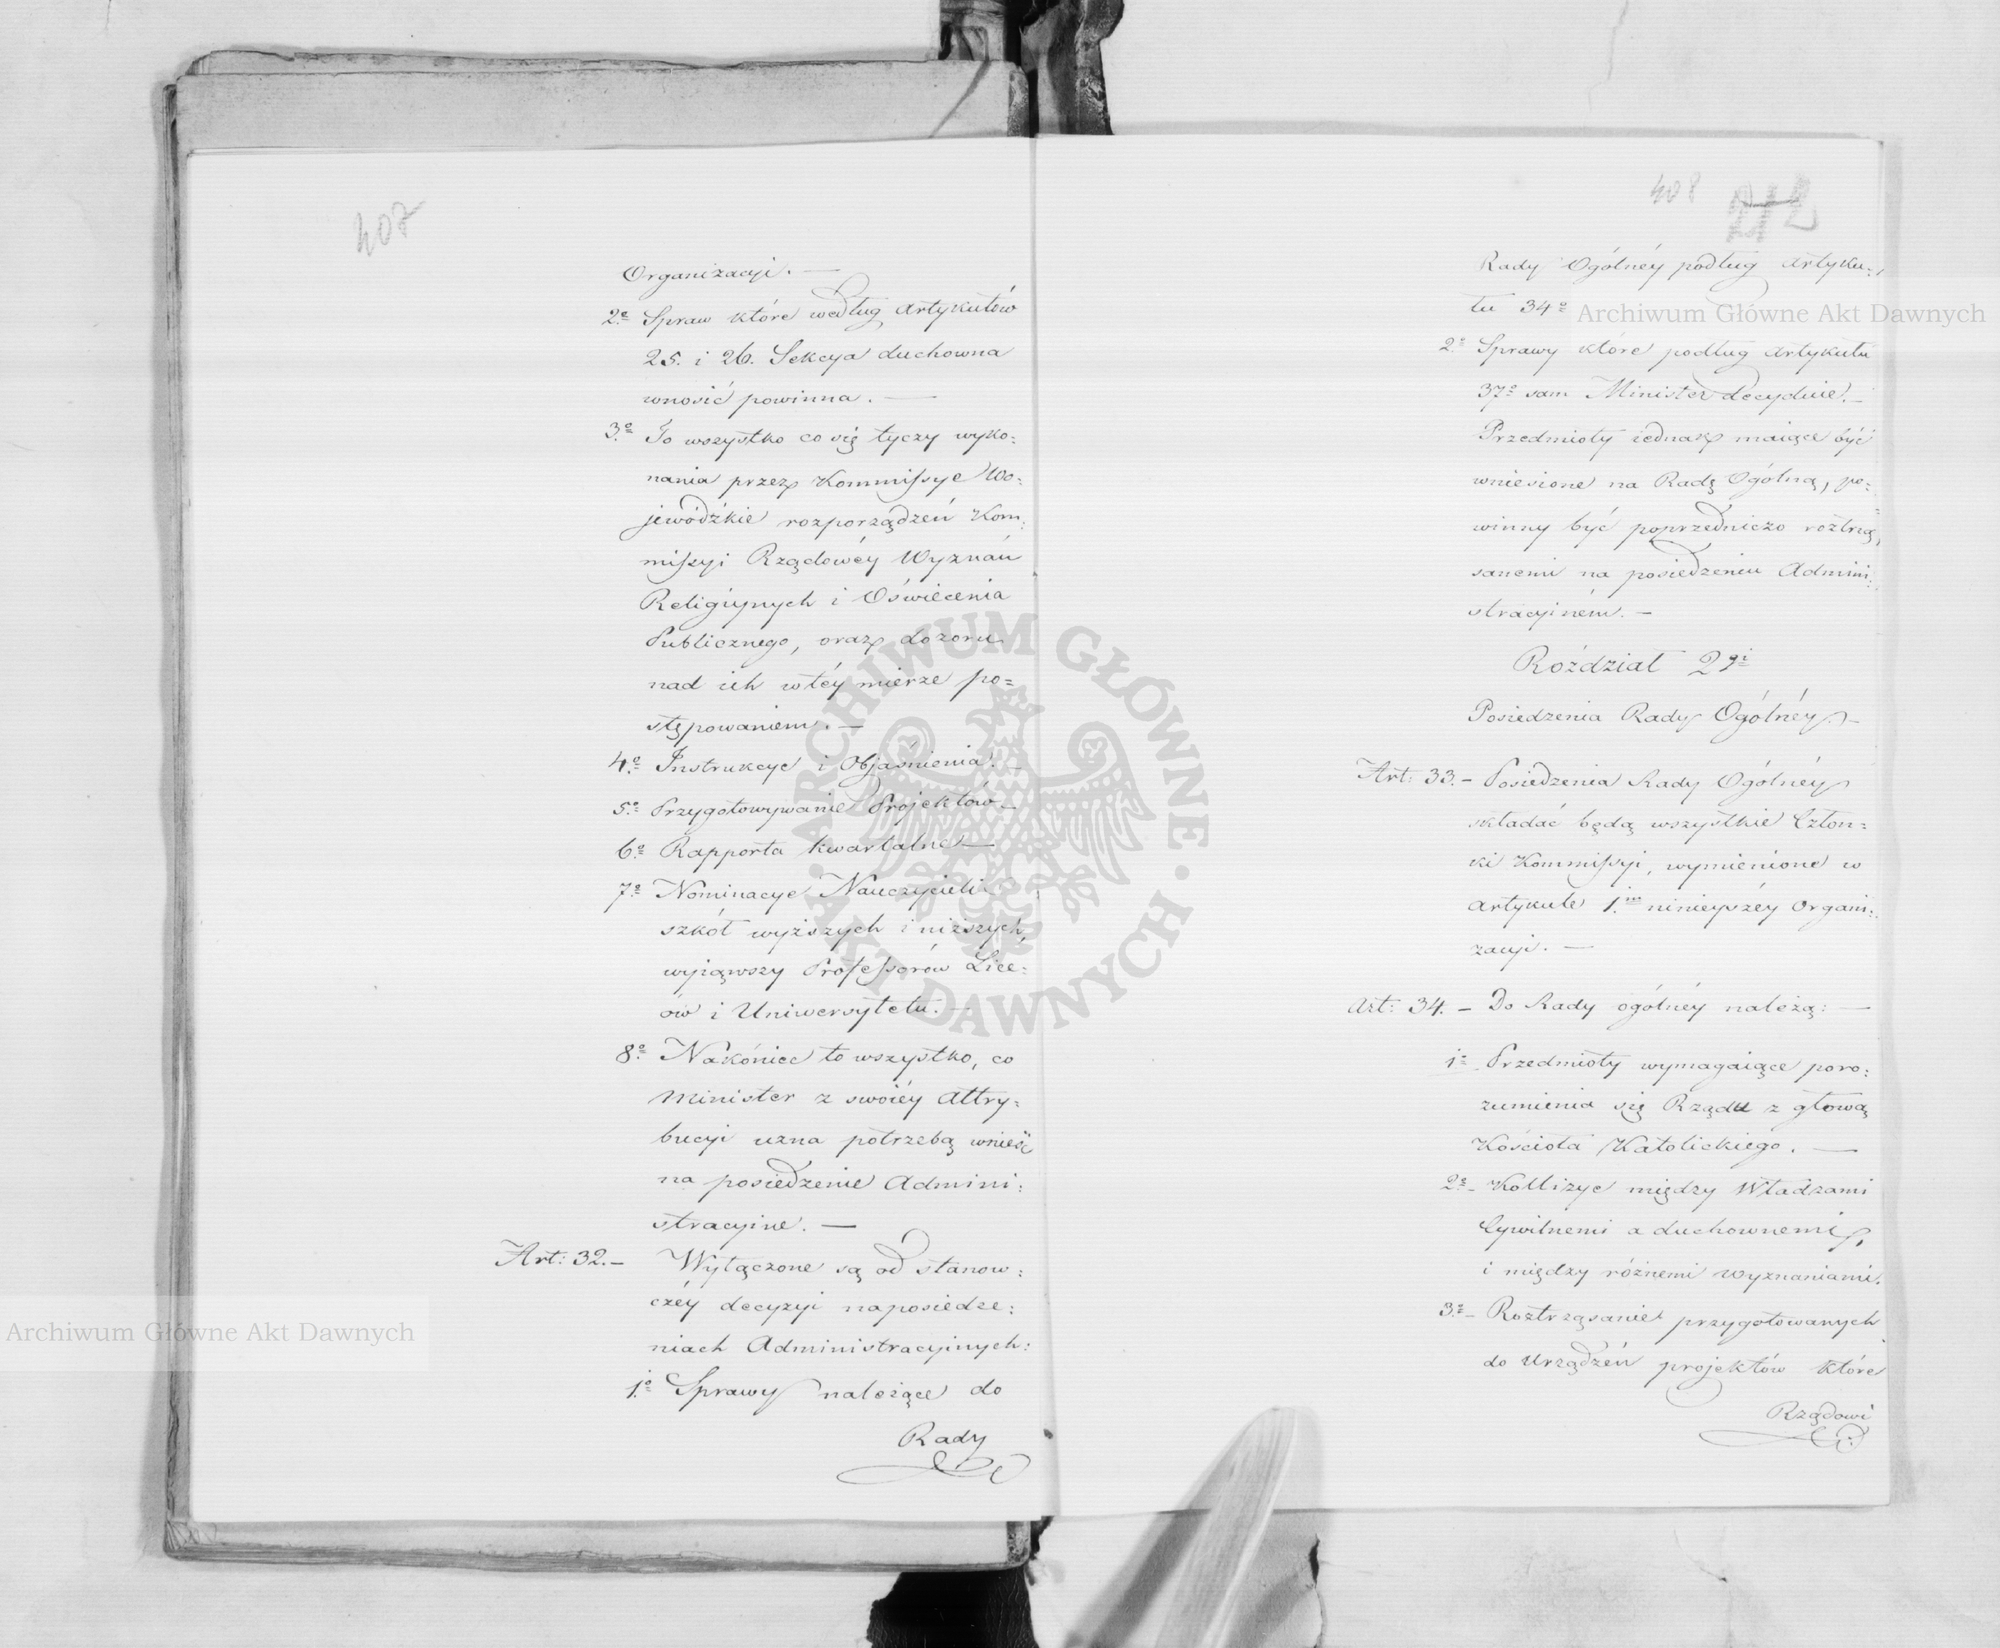 407
Organizacyi. —
2.º Spraw które według Artykułów
25. i 26. Sekcya duchowna
wnosić powinna. —
3.º To wszystko co się tyczy wyko:
nania przez Kommissye Wo:
jewódzkie rozporządzeń Kom:
missyi Rządowéy Wyznań
Religiynych i Oświecenia
Publicznego, oraz dozoru
nad ich w téy mierze po=
stępowaniem. —
4.º Instrukcye i Objaśnienia. —
5.º Przygotowywanie Projektów —
6.º Rapporta kwartalne —
7.º Nominacye Nauczycieli
szkół wyższych i niższych,
wyiąwszy Professorów Lice:
ów i Uniwersytetu. —
8.º Nakóniec to wszystko, co
Minister z swoiéy Attry:
bucyi uzna potrzebą wnieść
na posiedzenie Admini:
stracyine. —
Art: 32. — Wyłączone są od stanow:
czéy decyzyi na posiedze:
niach Administracyinych:
1.º Sprawy należące do
Rady
408 212
Rady Ogólnéy podług Artyku:
łu 34º
2.º Sprawy które podług Artykułu
37º sam Minister decyduie. —
Przedmioty iednak maiące być
wniesione na Radę Ogólną, po=
winny być poprzedniczo roztrzą=
sanemi na posiedzeniu Admini:
stracyiném. —
Roździał 2gi
Posiedzenia Rady Ogólnéy. —
Art: 33. — Posiedzenia Rady Ogólnéy
składać będą wszystkie Człon:
ki Kommissyi, wymienione w
Artykule 1.m ninieyszéy Organi:
zacyi. —
Art: 34. — Do Rady ogólnéy należą: —
1º — Przedmioty wymagaiące poro:
zumienia się Rządu z głową
Kościoła Katolickiego. —
2º — Kollizye między Władzami
Cywilnemi a duchownemi,
i między różnemi wyznaniami.
3º — Roztrząsanie przygotowanych
do Urządzeń projektów które
Rządowi
Archiwum Główne Akt Dawnych
Archiwum Główne Akt Dawnych
ARCHIWUM GŁÓWNE · AKT DAWNYCH ·